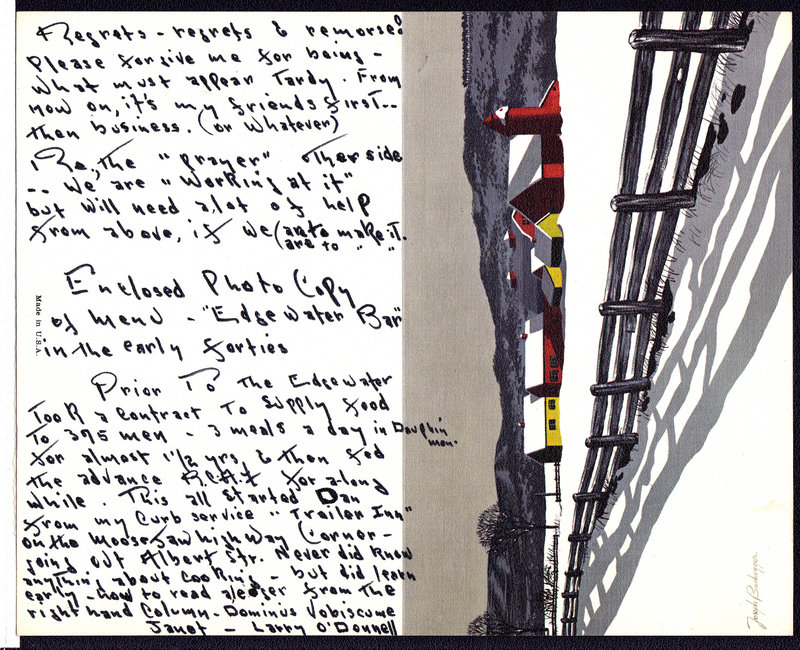 Regrets - regrets & remorsed
Please forgive me for being -
what must appear Tardy. From
now on, it's my friends first--
then business. (or whatever)
Re, the "prayer" other side
-- we are "working at it"
but will need alot of help
from above, if we (are to make it.
are to " "
Enclosed Photo Copy
of menu - "Edgewater Bar"
in the early forties
Made in U.S.A.
Prior To The Edgewater
Took a contract To supply food
To 375 men - 3 meals a day in Dauphin
man.
for almost 1 1/2 yrs. & then fed
the advance R.C.A.F for along
while. This all started Dan
from my Curb service "Trailer Inn"
on the Moose Jaw highway Corner -
going out Albert Str. Never did know
anything about cooking - but did learn
early - how to read aledger from the
right hand column - Dominus Vobiscume
Janet - Larry O'Donnell